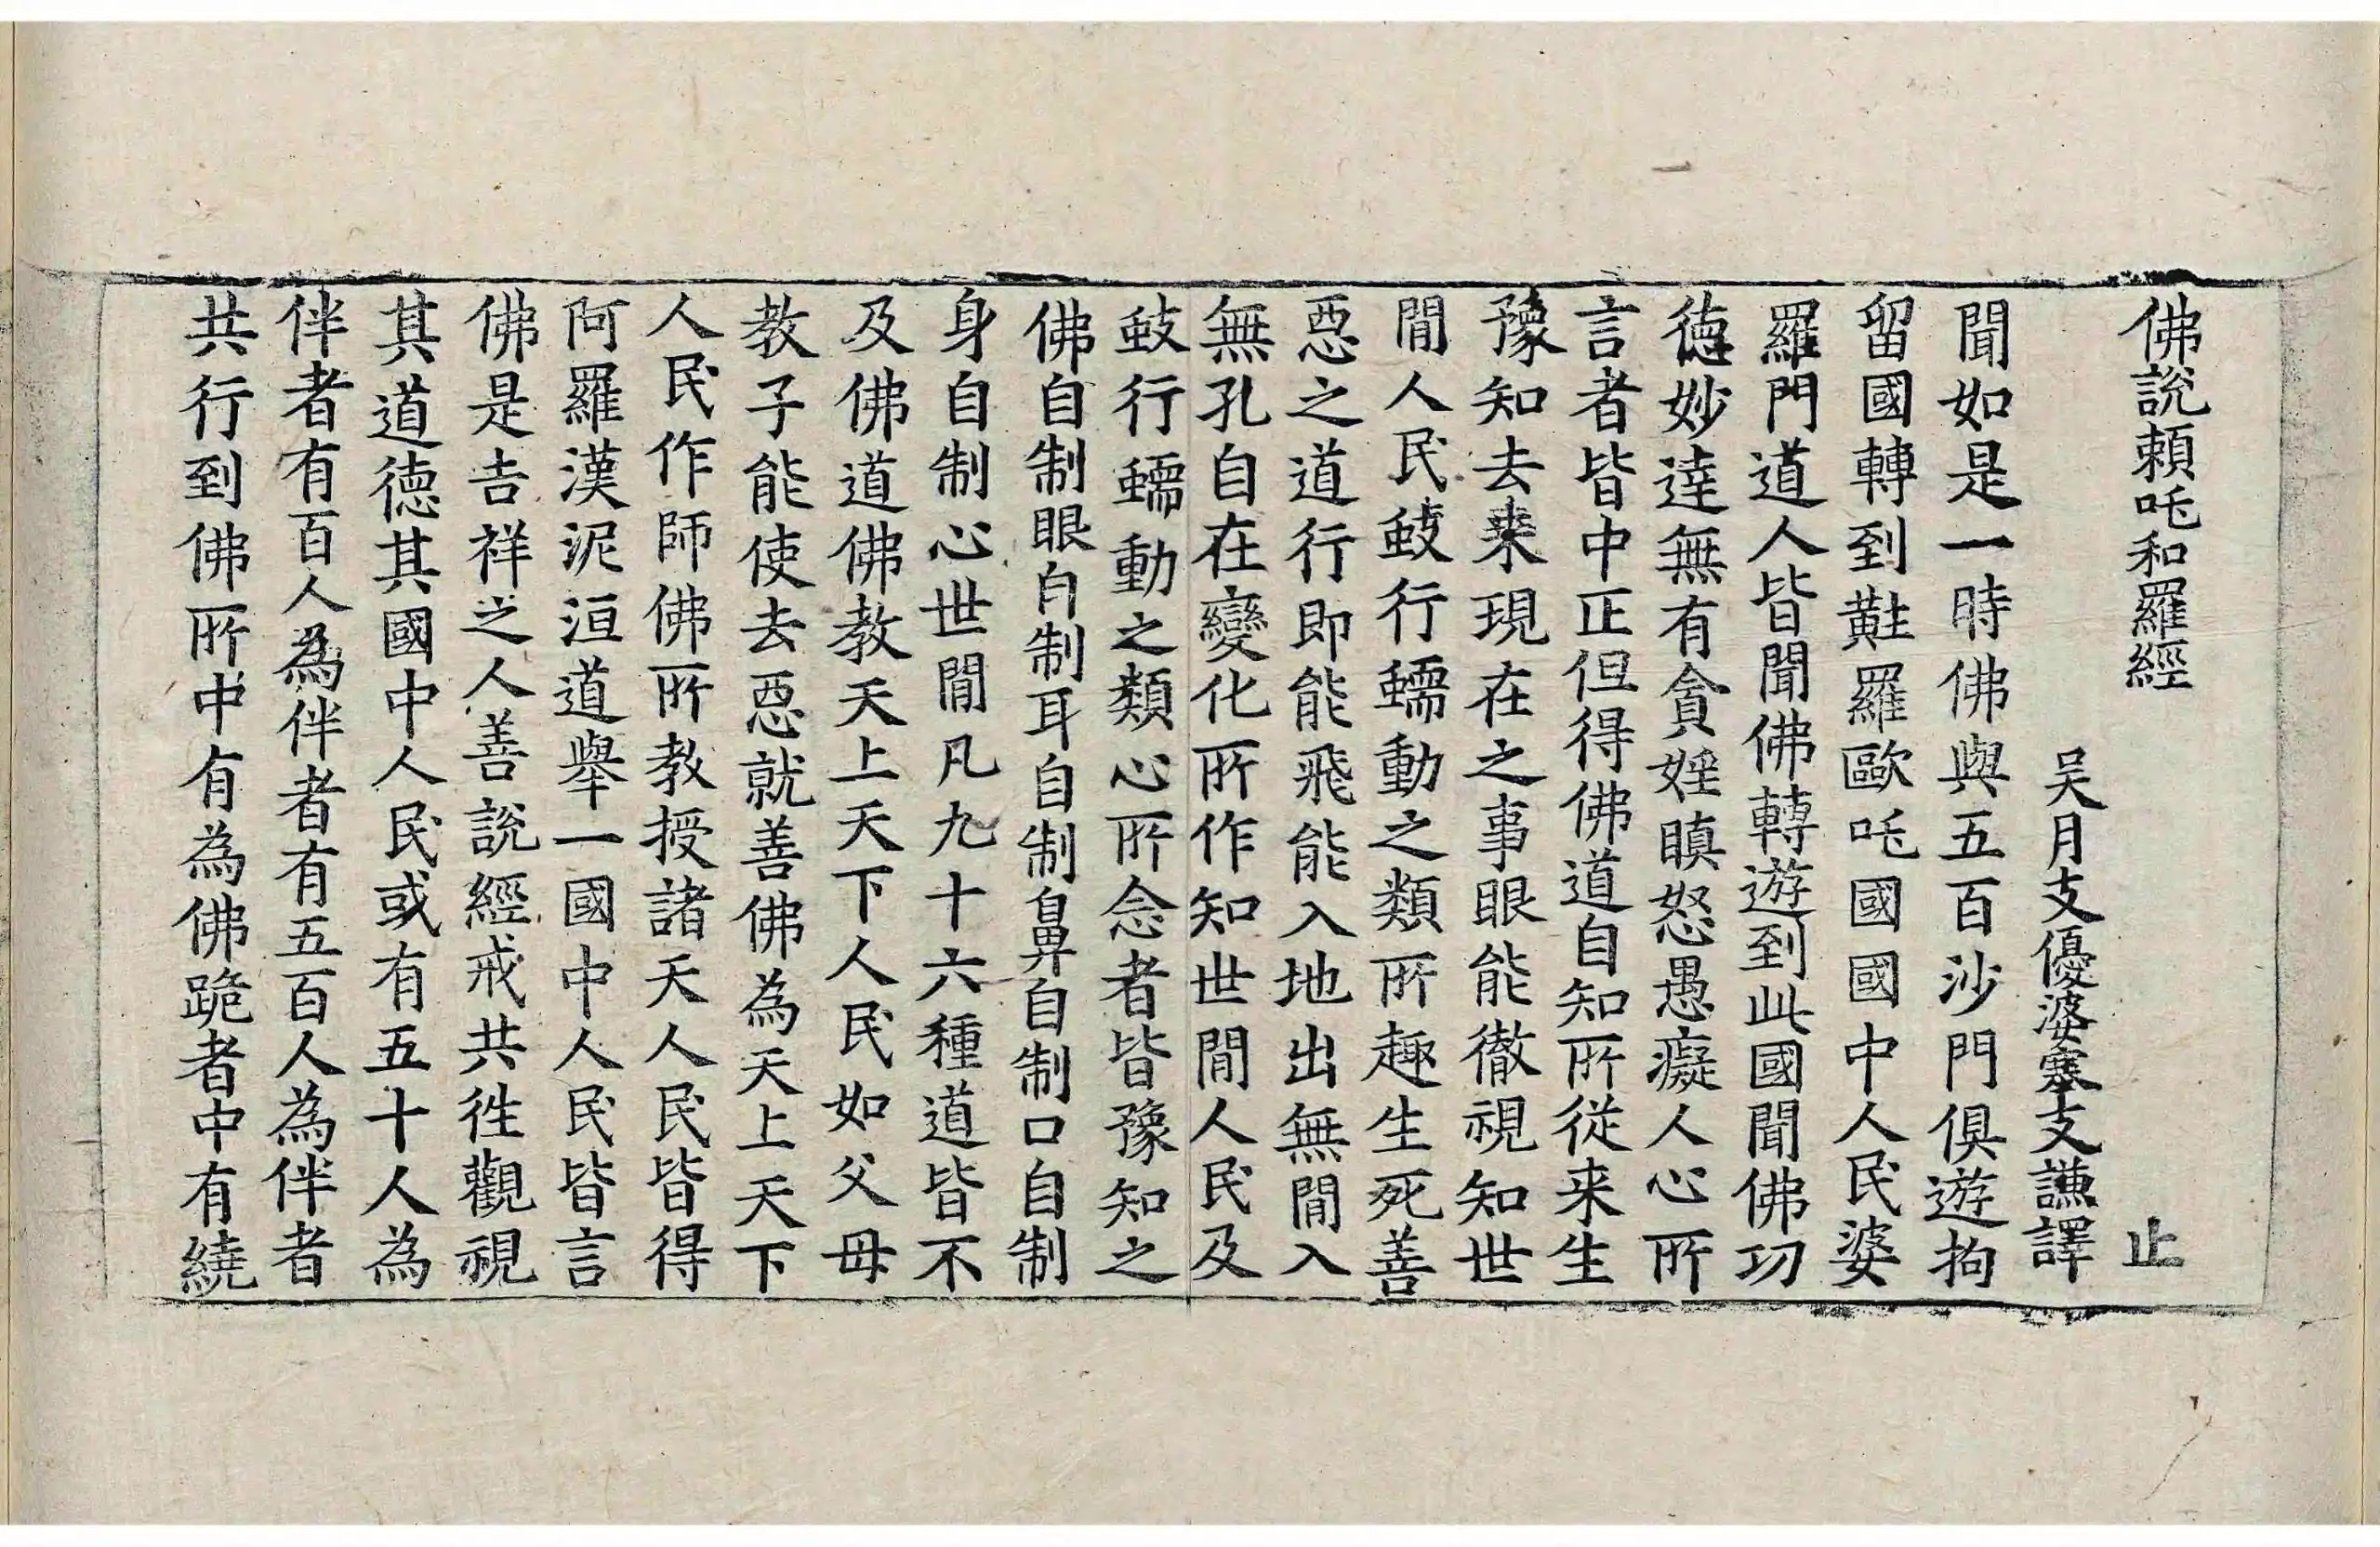 佛說頼吒和羅經 止
吴月支優婆塞支謙譯
聞如是一時佛與五百沙門俱遊拘
留國轉到黈羅歐吒國國中人民婆
羅門道人皆聞佛轉遊到此國聞佛功
德妙達無有貪婬瞋怒愚癡人心所
言者皆中正但得佛道自知所從来生
豫知去来現在之事眼能徹視知世
閒人民蚑行蠕動之類所趣生死善
惡之道行即能飛能入地出無閒入
無孔自在變化所作知世閒人民及
蚑行蠕動之類心所念者皆豫知之
佛自制眼自制耳自制鼻自制口自制
身自制心世閒凡九十六種道皆不
及佛道佛教天上天下人民如父母
教子能使去惡就善佛為天上天下
人民作師佛所教授諸天人民皆得
阿羅漢泥洹道舉一國中人民皆言
佛是吉祥之人善說經戒共徃觀視
其道德其國中人民或有五十人為
伴者有百人為伴者有五百人為伴者
共行到佛所中有為佛跪者中有繞